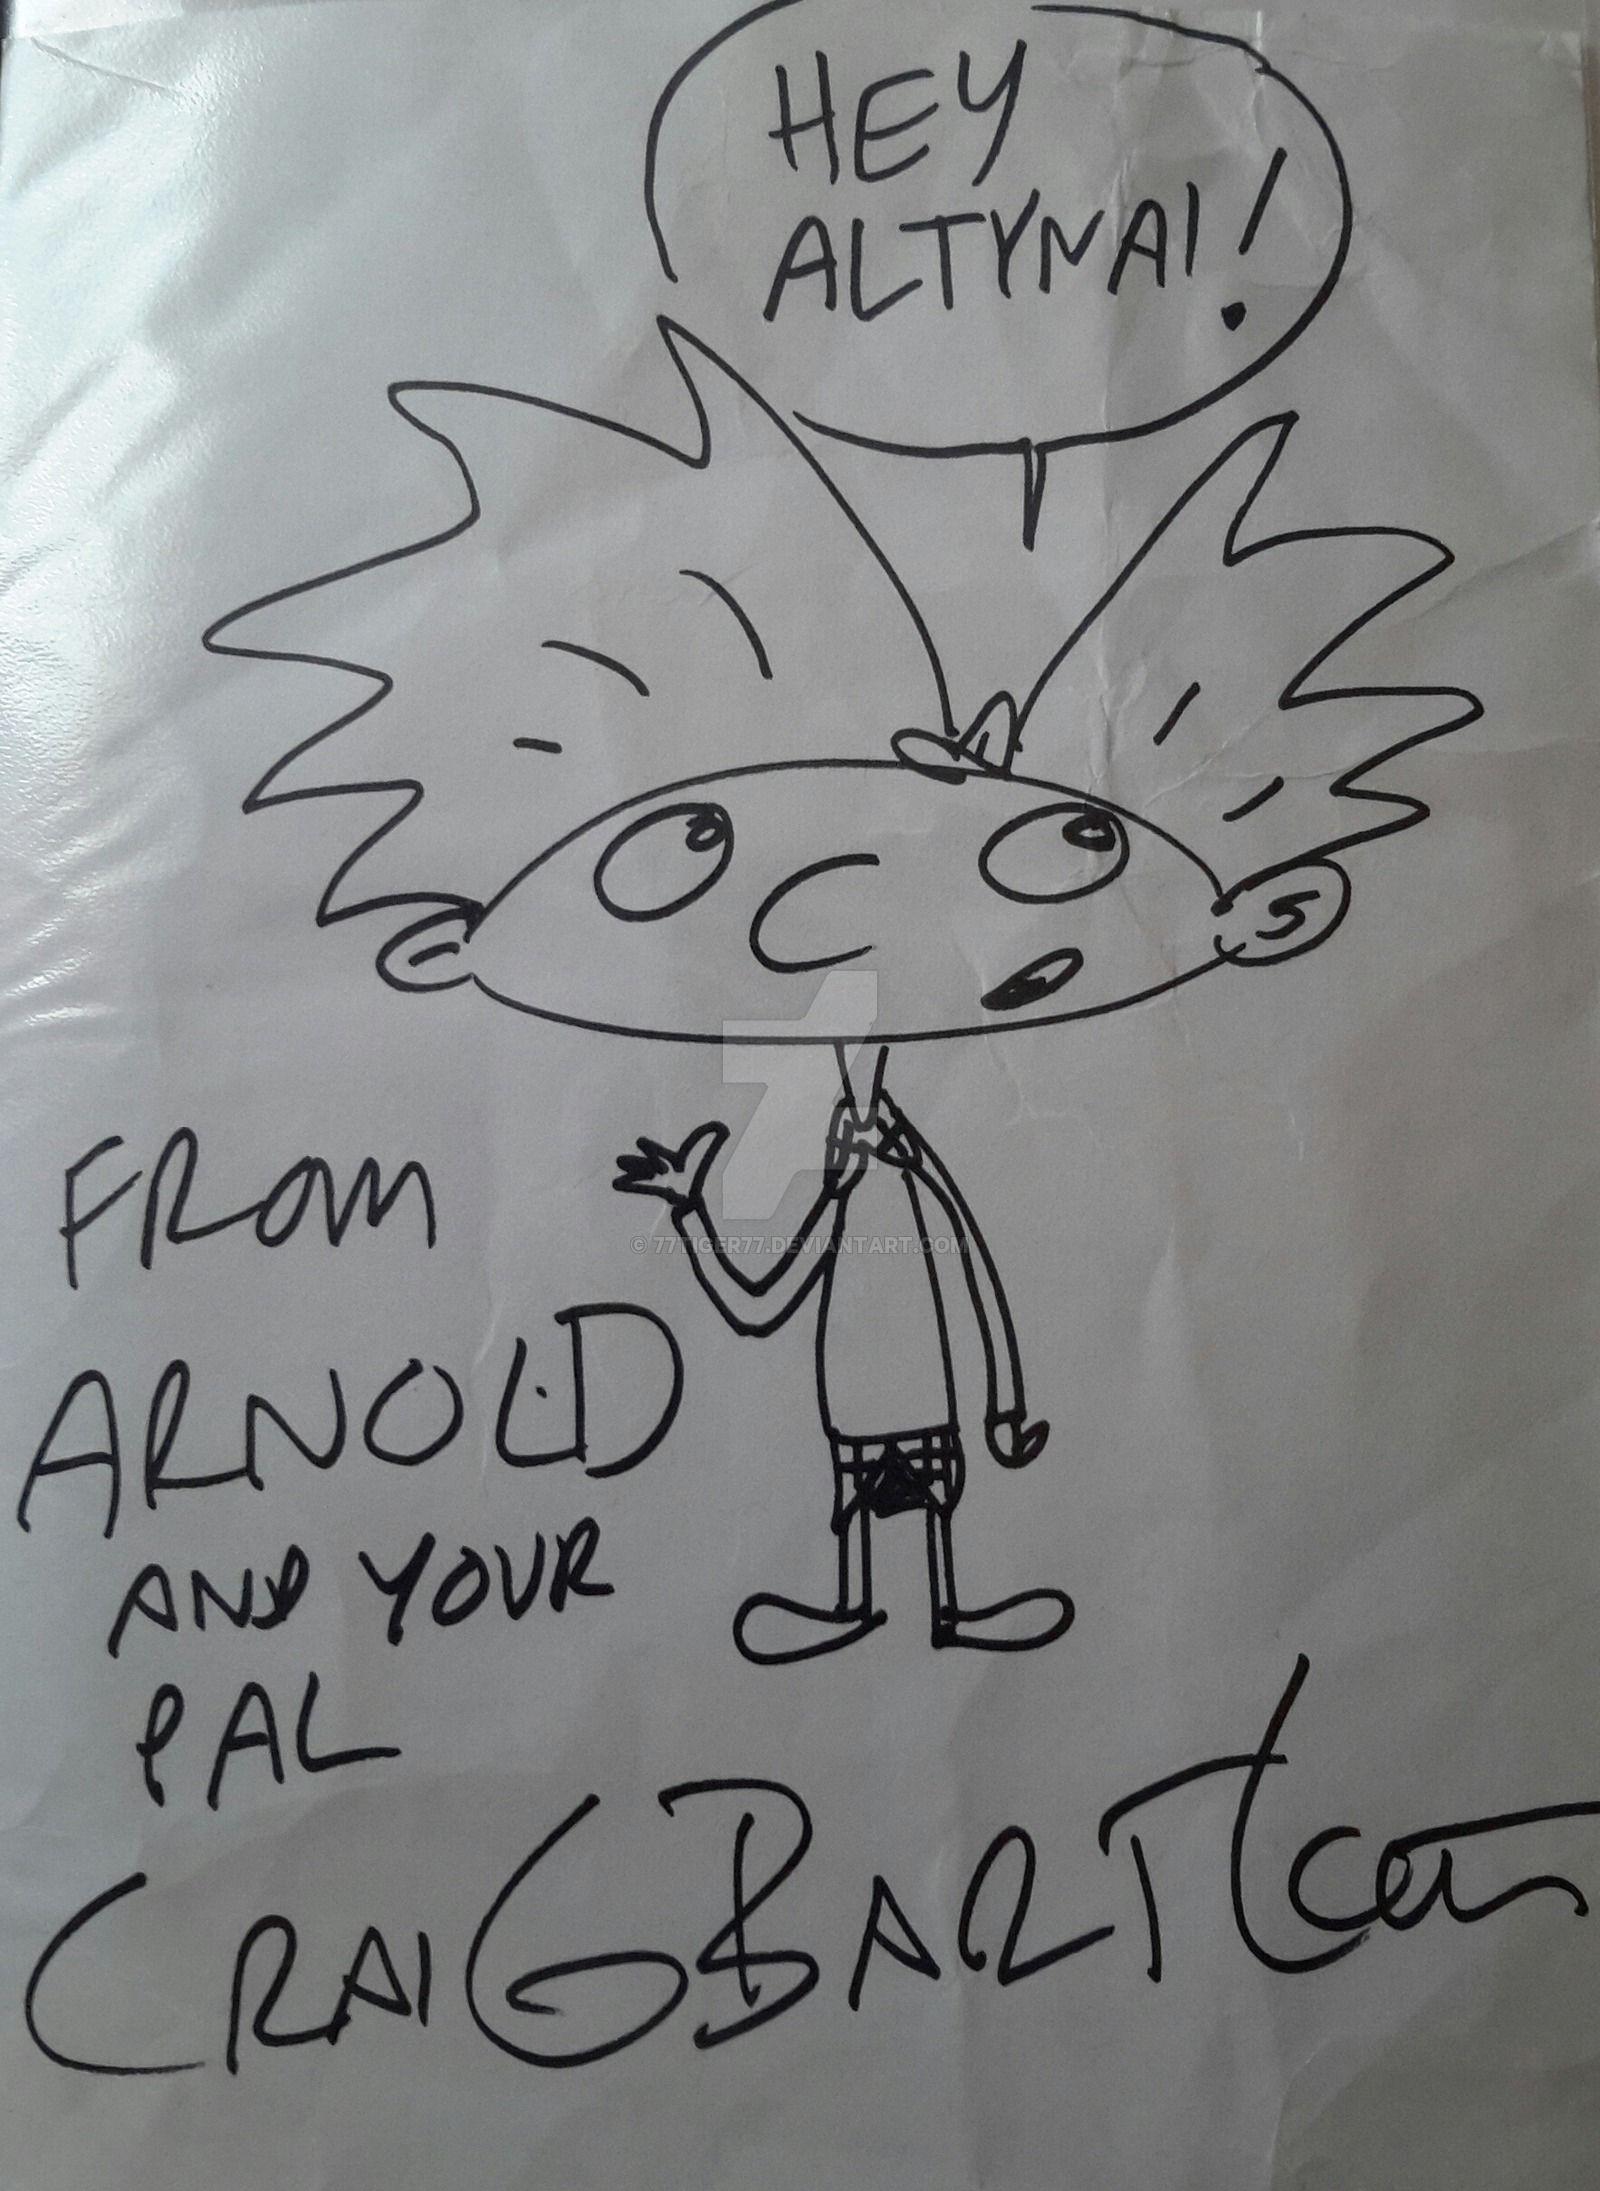 HEY
ALTYNAI!
© 77TIGER77.DEVIANTART.COM
FROM
ARNOLD
AND YOUR
PAL
CRAIG BARTLETT